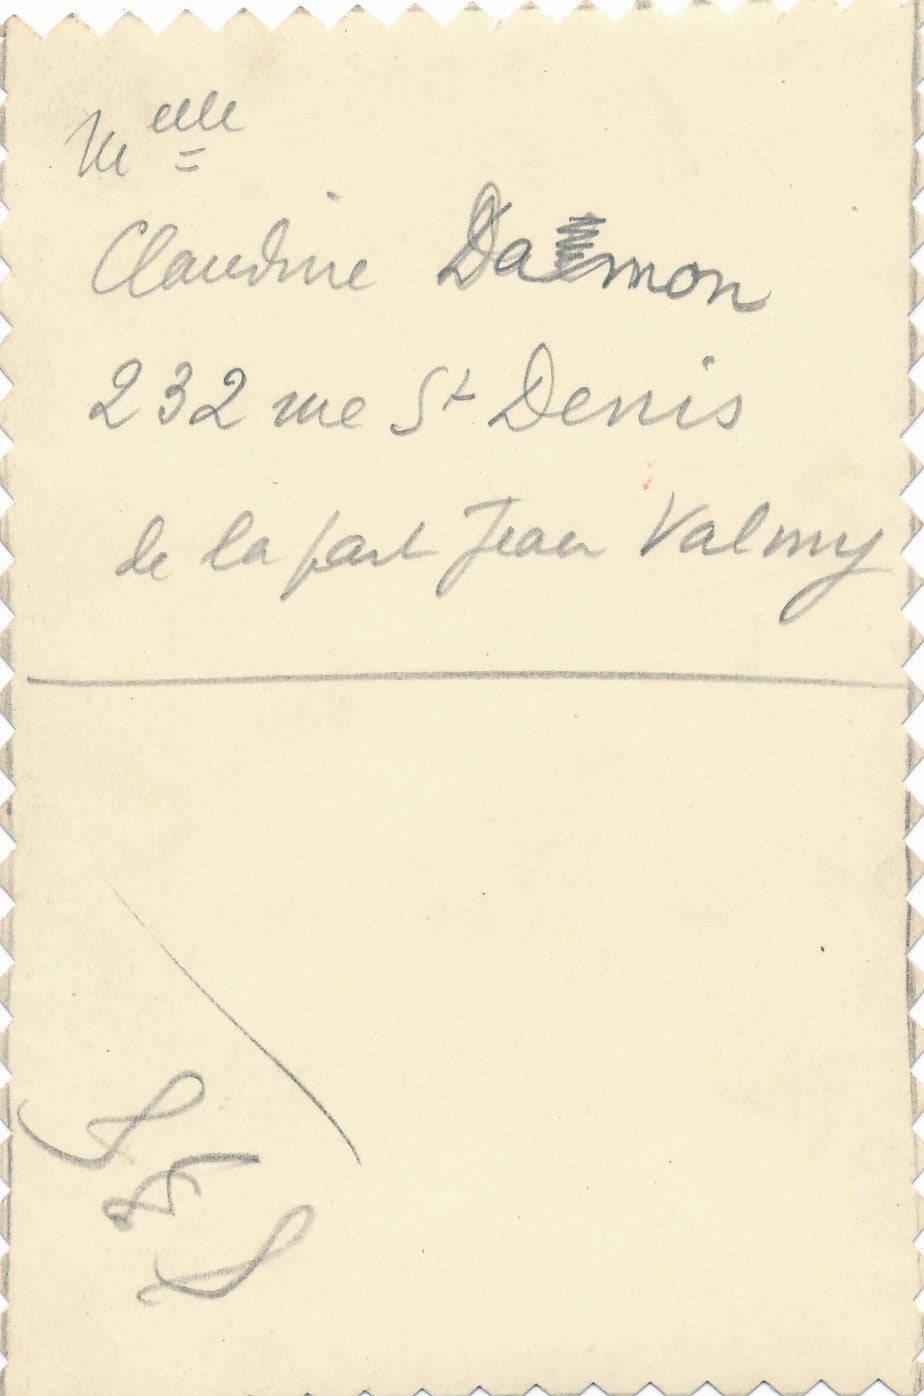 Melle
Claudine Damon
232 rue St Denis
de la part Jean Valmy